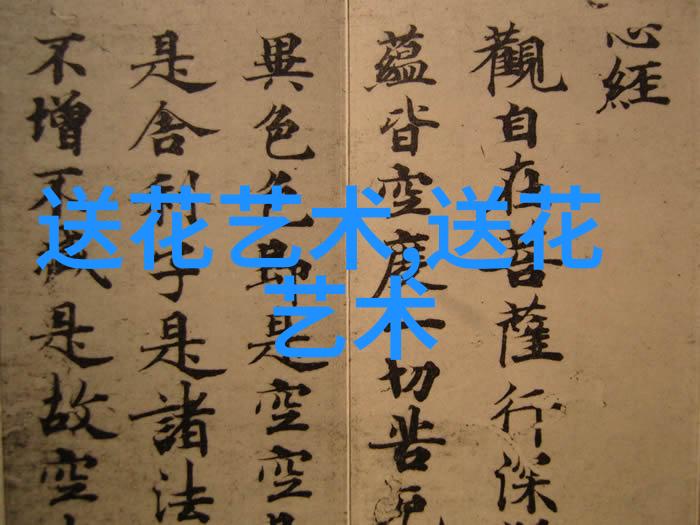 心經
觀自在菩薩行深
蘊皆空度一切苦厄
異色色即是空空
是舍利子是諸法
不增不減是故空
送花艺术,送花
艺术